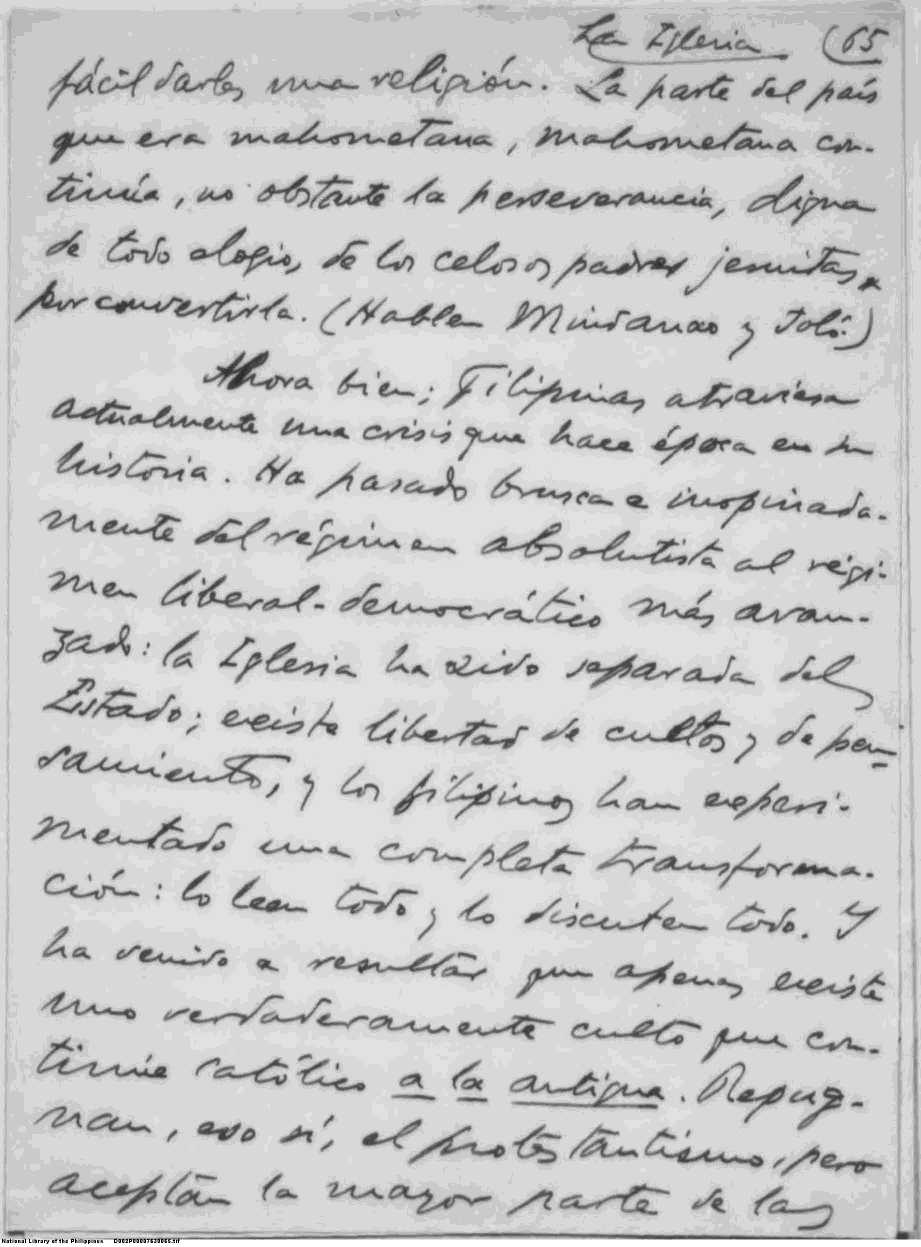 La Iglesia (65
fácil darles una religión. La parte del país
que era mahometana, mahometana con-
tinúa, no obstante la perseverancia, digna
de todo elogio, de los celosos padres jesuitas,
por convertirla. (Hablen Mindanao y Joló.)
Ahora bien; Filipinas atraviesa
actualmente una crisis que hace época en su
historia. Ha pasado brusca e inopinada-
mente del régimen absolutista al régi-
men liberal-democrático más avan-
zado: la Iglesia ha sido separada del
Estado; existe libertad de cultos y de pen-
samiento, y los filipinos han experi-
mentado una completa transforma-
ción: lo leen todo y lo discuten todo. Y
ha venido a resultar que apenas existe
uno verdaderamente culto que con-
tinúe católico a la antigua. Repug-
nan, eso sí, el protestantismo, pero
aceptan la mayor parte de las
National Library of the Philippines